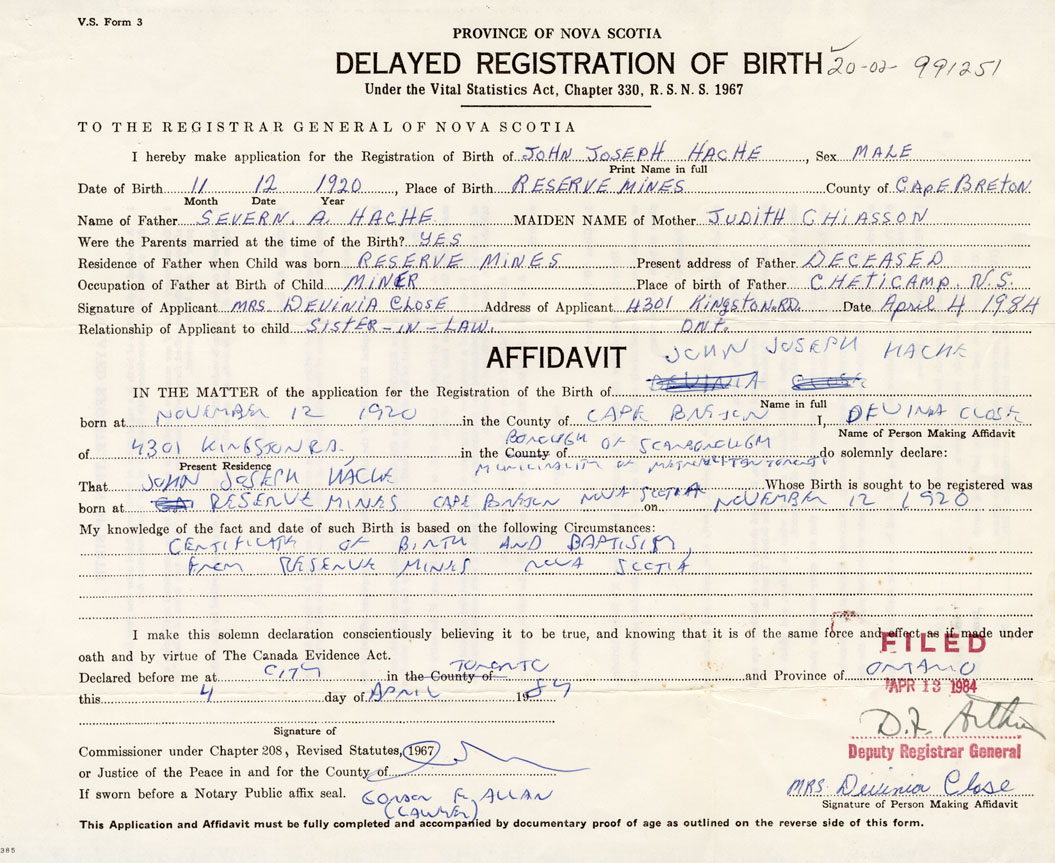 V.S. Form 3
PROVINCE OF NOVA SCOTIA
DELAYED REGISTRATION OF BIRTH 20-02- 991251
Under the Vital Statistics Act, Chapter 330, R. S. N. S. 1967
TO THE REGISTRAR GENERAL OF NOVA SCOTIA
I hereby make application for the Registration of Birth of JOHN JOSEPH HACHE, Sex MALE
Print Name in full
Date of Birth 11 12 1920, Place of Birth RESERVE MINES County of CAPE BRETON.
Month Date Year
Name of Father SEVERN. A. HACHE MAIDEN NAME of Mother JUDITH CHIASSON
Were the Parents married at the time of the Birth? YES
Residence of Father when Child was born RESERVE MINES Present address of Father DECEASED
Occupation of Father at Birth of Child MINER Place of birth of Father CHETICAMP. N.S.
Signature of Applicant MRS. DEVINIA CLOSE Address of Applicant 4301 KINGSTON RD. Date April 4 1984
Relationship of Applicant to child SISTER-IN-LAW. ONT.
AFFIDAVIT JOHN JOSEPH HACHE
IN THE MATTER of the application for the Registration of the Birth of DEVINIA CLOSE
Name in full
born at NOVEMBER 12 1920 in the County of CAPE BRETON I, DEVINIA CLOSE
Name of Person Making Affidavit
of 4301 KINGSTON RD. in the County of BOROUGH OF SCARBOROUGH do solemnly declare:
Present Residence MUNICIPALITY OF METROPOLITAN TORONTO
That JOHN JOSEPH HACHE Whose Birth is sought to be registered was
born at RESERVE MINES CAPE BRETON NOVA SCOTIA on NOVEMBER 12 1920
My knowledge of the fact and date of such Birth is based on the following Circumstances:
CERTIFICATE OF BIRTH AND BAPTISM,
FROM RESERVE MINES NOVA SCOTIA
I make this solemn declaration conscientiously believing it to be true, and knowing that it is of the same force and effect as if made under
FILED
oath and by virtue of The Canada Evidence Act.
Declared before me at CITY in the County of TORONTO and Province of ONTARIO
this 4 day of APRIL 1984
APR 13 1984
Signature of
D.F. Arthur
Commissioner under Chapter 208, Revised Statutes, 1967
Deputy Registrar General
or Justice of the Peace in and for the County of
MRS. Devinia Close
If sworn before a Notary Public affix seal. GORDON F. ALLAN
Signature of Person Making Affidavit
(LAWYER)
This Application and Affidavit must be fully completed and accompanied by documentary proof of age as outlined on the reverse side of this form.
385